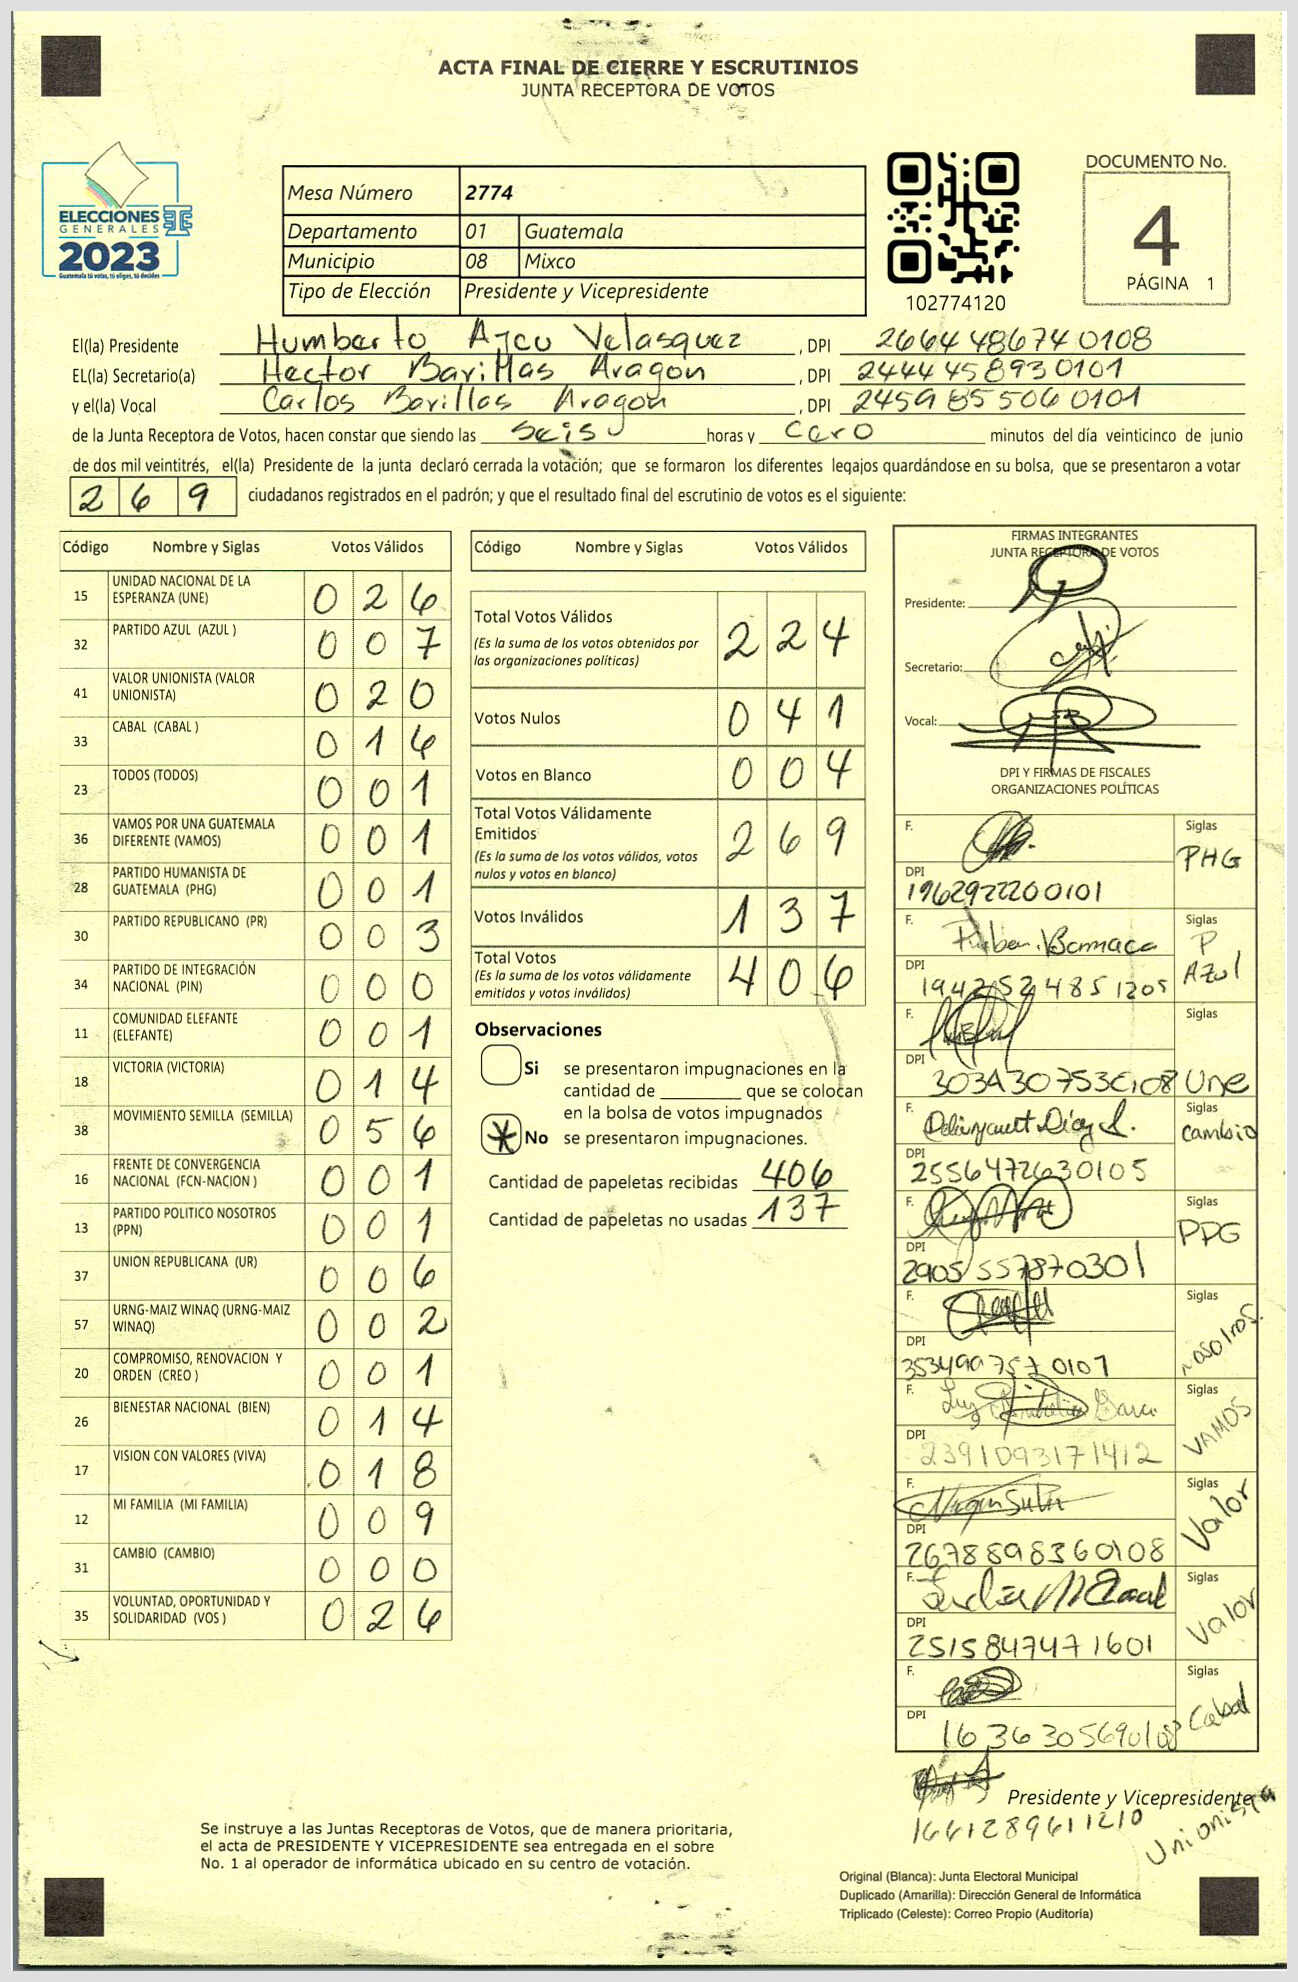 ACTA FINAL DE CIERRE Y ESCRUTINIOS
JUNTA RECEPTORA DE VOTOS
ELECCIONES
GENERALES
2023
Guatemala tú votas, tú eliges, tú decides
Mesa Número 2774
Departamento 01 Guatemala
Municipio 08 Mixco
Tipo de Elección Presidente y Vicepresidente
102774120
DOCUMENTO No.
4
PÁGINA 1
El(la) Presidente Humberto Ajcu Velasquez , DPI 2664486740108
EL(la) Secretario(a) Hector Barillas Aragon , DPI 2444458930101
y el(la) Vocal Carlos Barillas Aragon , DPI 2459855060101
de la Junta Receptora de Votos, hacen constar que siendo las seis horas y cero minutos del día veinticinco de junio
de dos mil veintitrés, el(la) Presidente de la junta declaró cerrada la votación; que se formaron los diferentes legajos guardándose en su bolsa, que se presentaron a votar
269 ciudadanos registrados en el padrón; y que el resultado final del escrutinio de votos es el siguiente:
Código Nombre y Siglas Votos Válidos
15 UNIDAD NACIONAL DE LA ESPERANZA (UNE) 026
32 PARTIDO AZUL (AZUL ) 007
41 VALOR UNIONISTA (VALOR UNIONISTA) 020
33 CABAL (CABAL ) 016
23 TODOS (TODOS) 001
36 VAMOS POR UNA GUATEMALA DIFERENTE (VAMOS) 001
28 PARTIDO HUMANISTA DE GUATEMALA (PHG) 001
30 PARTIDO REPUBLICANO (PR) 003
34 PARTIDO DE INTEGRACIÓN NACIONAL (PIN) 000
11 COMUNIDAD ELEFANTE (ELEFANTE) 001
18 VICTORIA (VICTORIA) 014
38 MOVIMIENTO SEMILLA (SEMILLA) 056
16 FRENTE DE CONVERGENCIA NACIONAL (FCN-NACION ) 001
13 PARTIDO POLITICO NOSOTROS (PPN) 001
37 UNION REPUBLICANA (UR) 006
57 URNG-MAIZ WINAQ (URNG-MAIZ WINAQ) 002
20 COMPROMISO, RENOVACION Y ORDEN (CREO ) 001
26 BIENESTAR NACIONAL (BIEN) 014
17 VISION CON VALORES (VIVA) 018
12 MI FAMILIA (MI FAMILIA) 009
31 CAMBIO (CAMBIO) 000
35 VOLUNTAD, OPORTUNIDAD Y SOLIDARIDAD (VOS ) 026
Código Nombre y Siglas Votos Válidos
Total Votos Válidos 224
(Es la suma de los votos obtenidos por
las organizaciones políticas)
Votos Nulos 041
Votos en Blanco 004
Total Votos Válidamente
Emitidos 269
(Es la suma de los votos válidos, votos
nulos y votos en blanco)
Votos Inválidos 137
Total Votos 406
(Es la suma de los votos válidamente
emitidos y votos inválidos)
Observaciones
Si se presentaron impugnaciones en la
cantidad de ________ que se colocan
en la bolsa de votos impugnados
No se presentaron impugnaciones.
Cantidad de papeletas recibidas 406
Cantidad de papeletas no usadas 137
FIRMAS INTEGRANTES
JUNTA RECEPTORA DE VOTOS
Presidente:
Secretario:
Vocal:
DPI Y FIRMAS DE FISCALES
ORGANIZACIONES POLÍTICAS
F. Siglas PHG
DPI 1962922200101
F. Siglas P Azul
DPI 1942524851205
F. Siglas Une
DPI
F. Siglas Cambio
DPI 2556472630105
F. Siglas PPG
DPI 2905557870301
F. Siglas nosotros
DPI
F. Siglas VAMOS
DPI 2391093171412
F. Siglas Valor
DPI 2678898360108
F. Siglas Valor
DPI 2515847471601
F. Siglas Cabal
DPI 1636305690108
Presidente y Vicepresidente
1661289611210 Unionista
Se instruye a las Juntas Receptoras de Votos, que de manera prioritaria,
el acta de PRESIDENTE Y VICEPRESIDENTE sea entregada en el sobre
No. 1 al operador de informática ubicado en su centro de votación.
Original (Blanca): Junta Electoral Municipal
Duplicado (Amarilla): Dirección General de Informática
Triplicado (Celeste): Correo Propio (Auditoría)